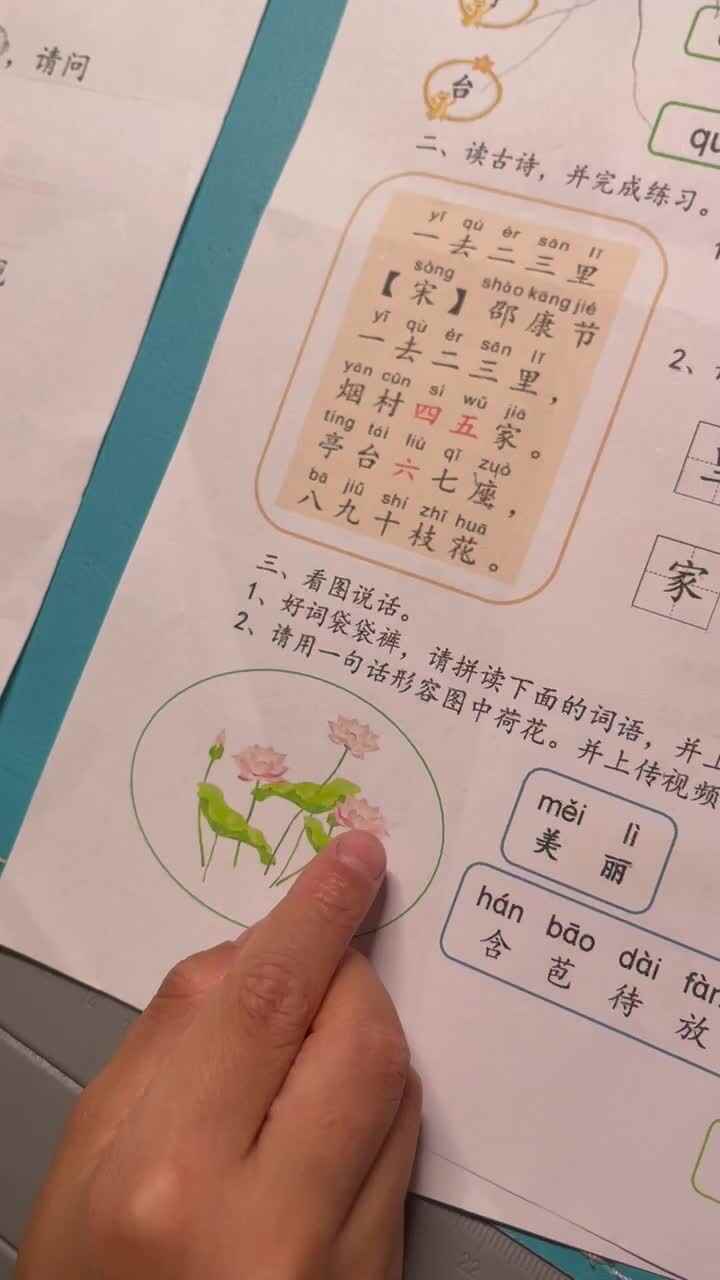 ，请问
台
qu
二、读古诗，并完成练习。
yī qù èr sān lǐ
一去二三里
sòng shào kāng jié
【宋】邵康节
yī qù èr sān lǐ
一去二三里，
yān cūn sì wǔ jiā
烟村四五家。
tíng tái liù qī zuò
亭台六七座，
bā jiǔ shí zhī huā
八九十枝花。
2、
家
三、看图说话。
1、好词袋袋裤，请拼读下面的词语，并上
2、请用一句话形容图中荷花。并上传视频
měi lì
美丽
hán bāo dài fàn
含苞待放
22